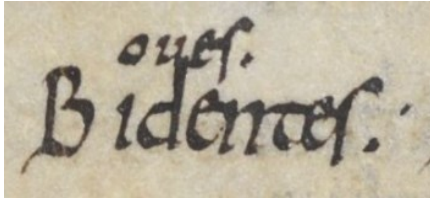 oues.
Bidentes.